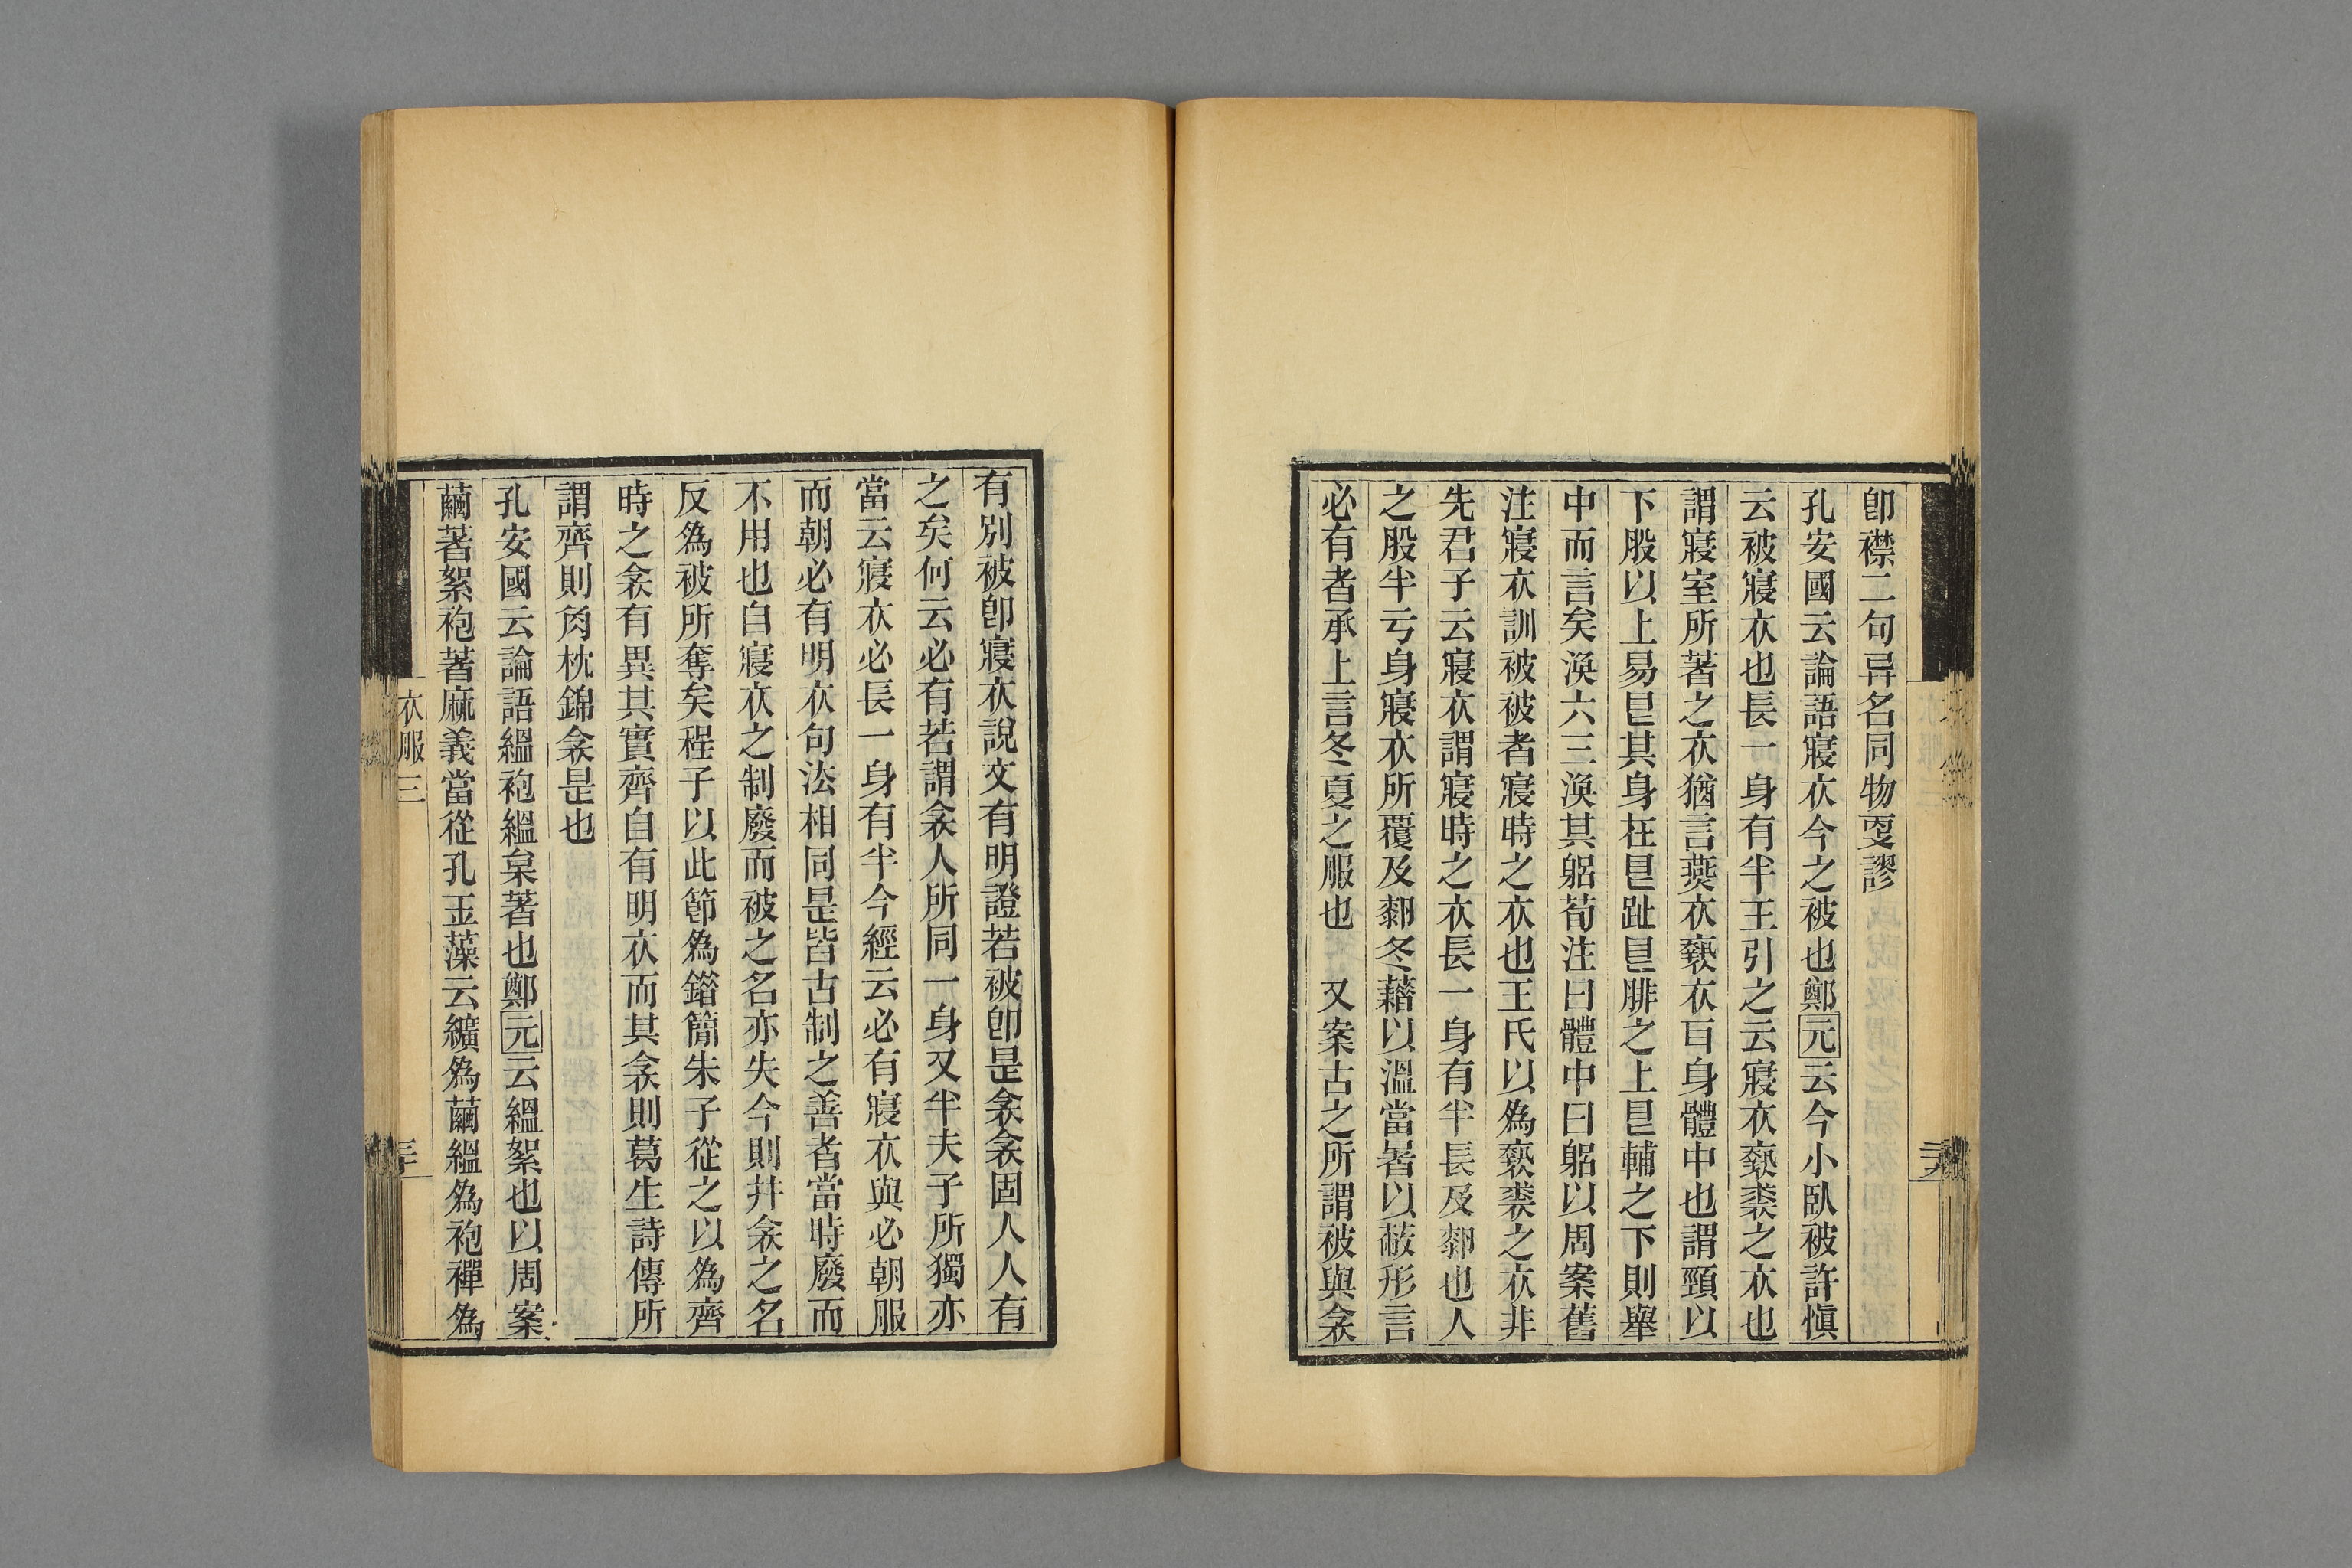 卽襟二句异名同物叓謬
孔安國云論語寢衣今之被也鄭元云今小臥被許愼
云被寢衣也長一身有半王引之云寢衣褻裘之衣也
謂寢室所著之衣猶言燕衣褻衣百身體中也謂頸以
下股以上易㫐其身在㫐趾㫐腓之上㫐輔之下則舉
中而言矣渙六三渙其躳荀注曰體中曰躳以周案舊
注寢衣訓被被者寢時之衣也王氏以爲褻裘之衣非
先君子云寢衣謂寢時之衣長一身有半長及厀也人
之股半亏身寢衣所覆及厀冬藉以溫當暑以蔽形言
必有者承上言冬夏之服也 又案古之所謂被與衾
有別被卽寢衣說文有明證若被卽是衾衾固人人有
之矣何云必有若謂衾人所同一身又半夫子所獨亦
當云寢衣必長一身有半今經云必有寢衣與必朝服
而朝必有明衣句法相同是皆古制之善者當時廢而
不用也自寢衣之制廢而被之名亦失今則幷衾之名
反爲被所奪矣程子以此節爲錯簡朱子從之以爲齊
時之衾有異其實齊自有明衣而其衾則葛生詩傳所
謂齊則角枕錦衾是也
孔安國云論語縕袍縕枲著也鄭元云縕絮也以周案
繭著絮袍著麻義當從孔玉藻云纊爲繭縕爲袍襌爲
衣服三